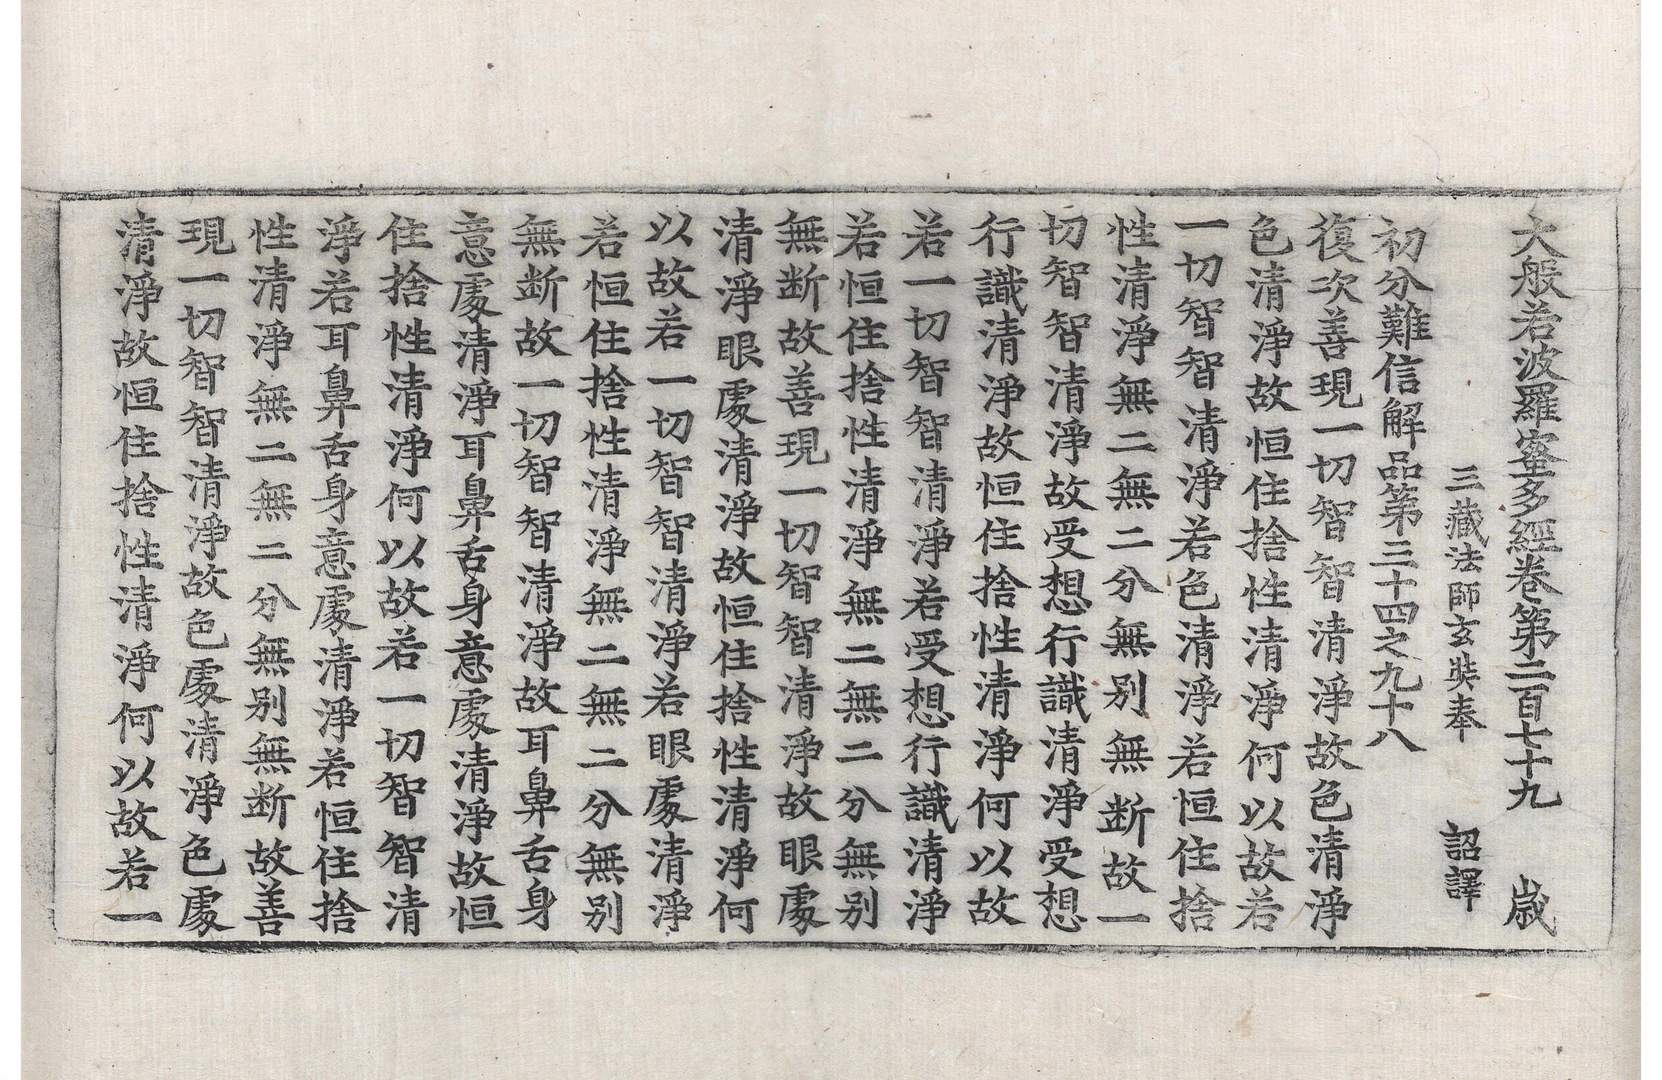 大般若波羅蜜多經卷第二百七十九 歲
三藏法師玄奘奉 詔譯
初分難信解品第三十四之九十八
復次善現一切智智清淨故色清淨
色清淨故恒住捨性清淨何以故若
一切智智清淨若色清淨若恒住捨
性清淨無二無二分無別無斷故一
切智智清淨故受想行識清淨受想
行識清淨故恒住捨性清淨何以故
若一切智智清淨若受想行識清淨
若恒住捨性清淨無二無二分無別
無斷故善現一切智智清淨故眼處
清淨眼處清淨故恒住捨性清淨何
以故若一切智智清淨若眼處清淨
若恒住捨性清淨無二無二分無別
無斷故一切智智清淨故耳鼻舌身
意處清淨耳鼻舌身意處清淨故恒
住捨性清淨何以故若一切智智清
淨若耳鼻舌身意處清淨若恒住捨
性清淨無二無二分無別無斷故善
現一切智智清淨故色處清淨色處
清淨故恒住捨性清淨何以故若一